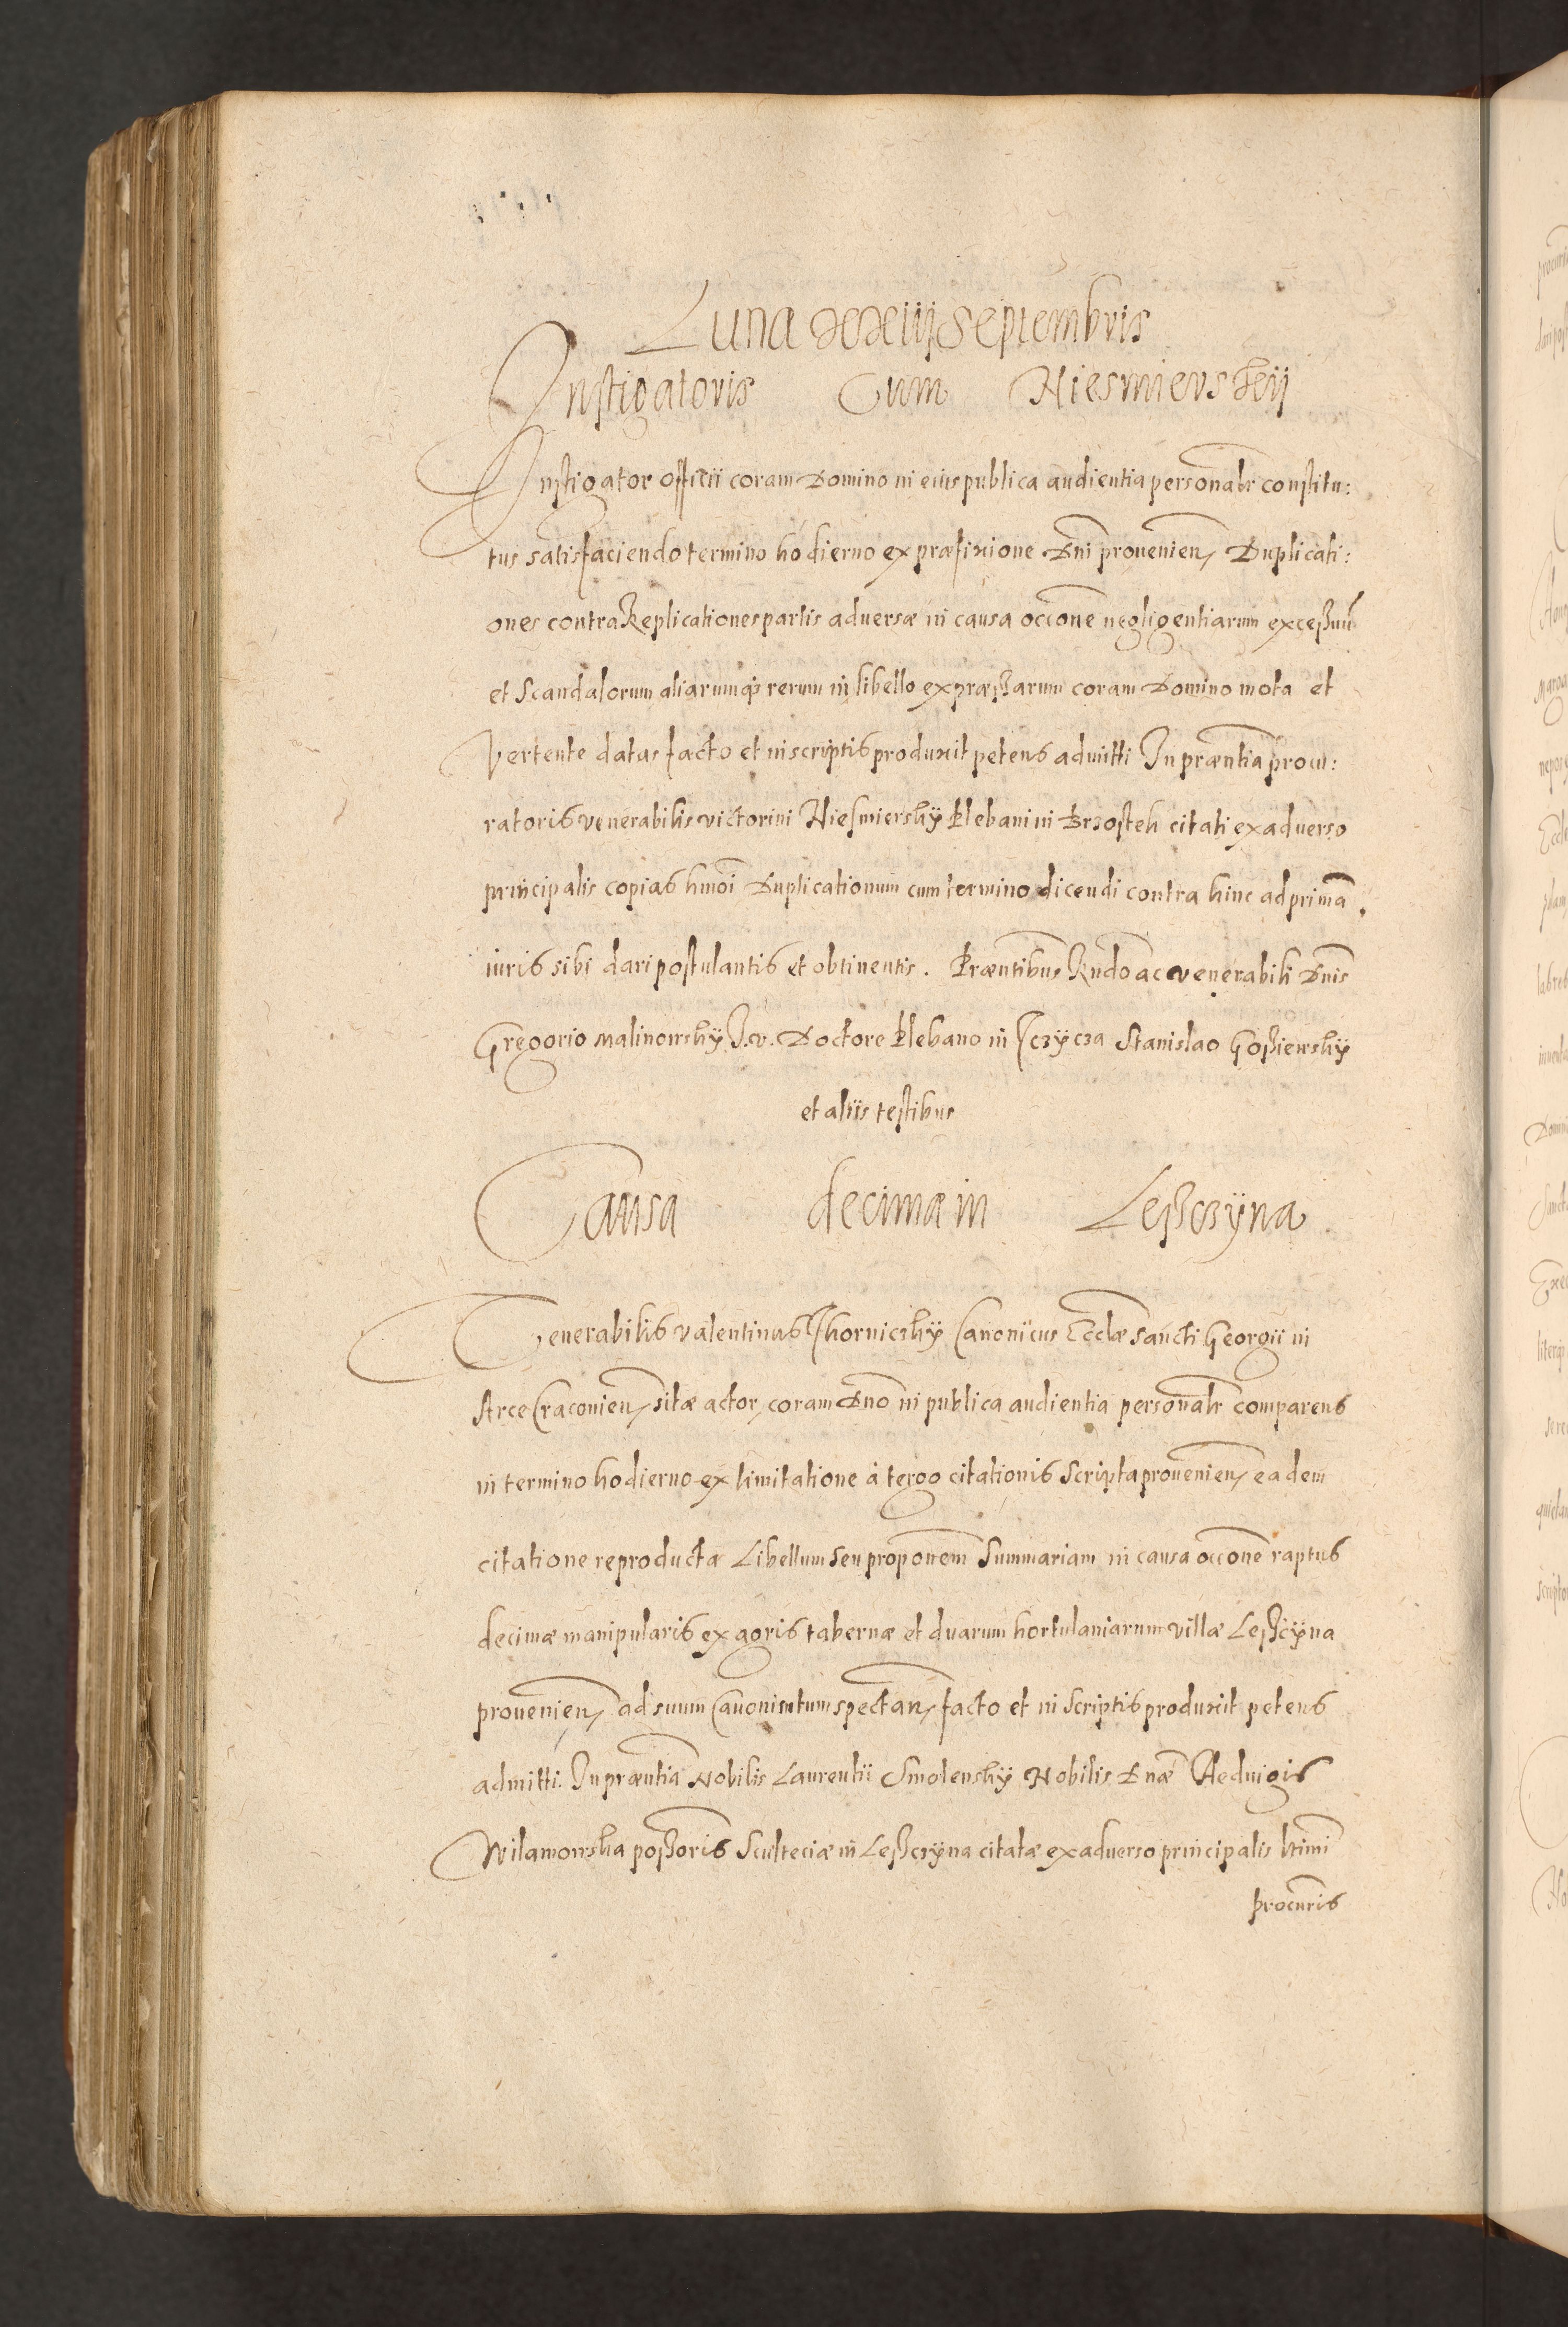 Luna xxiij Septembris
Instigatoris Cum Niesmierskij
Instigator officii coram Domino in eius publica audientia personalr constitu:
tus satisfaciendo termino hodierno ex præfixione Dni prouenien Duplicati:
ones contra Replicationes partis adversæ in causa occione negligentiarum exceßuu
et Scandalorum aliarumqs rerum in libello expræßarum coram Domino mota et
Vertente datas facto et in scriptis produxit petens admitti In præntia procu:
ratoris venerabilis victorini Niesmierskÿ Plebani in Brzostek citati ex adverso
principalis copias hmoi Duplicationum cum termino dicendi contra hinc ad primā
iuris sibi dari postulantis et obtinentis. Præntibus Rndo ac venerabili Dnis
Gregorio Malinowskÿ J. v. Doctore Plebano in Sczÿcza Stanislao Goßiewskÿ
et aliis testibus
Causa decimæ in Leßczÿna
Venerabilis valentinus Skorniczkÿ Canonicus Eccłæ sancti Georgii in
Arce Cracouien sitæ actor, coram Dno in publica audientia personalr comparens
in termino hodierno ex limitatione à tergo citationis Scripta prouenien eadem
citatione reproducta Libellum seu proponem Summariam in causa occone raptus
decimæ manipularis ex agris tabernæ et duarum hortulaniarum villæ Leßcÿna
prouenien ad suum Canonicatum spectan facto et in Scriptis produxit petens
admitti. In præntia Nobilis Laurentii Smolenskÿ Nobilis Dnæ Heduigis
Wilamowska poßoris Sculteciæ in Leßczÿna citatæ ex adverso principalis ltimi
procuris